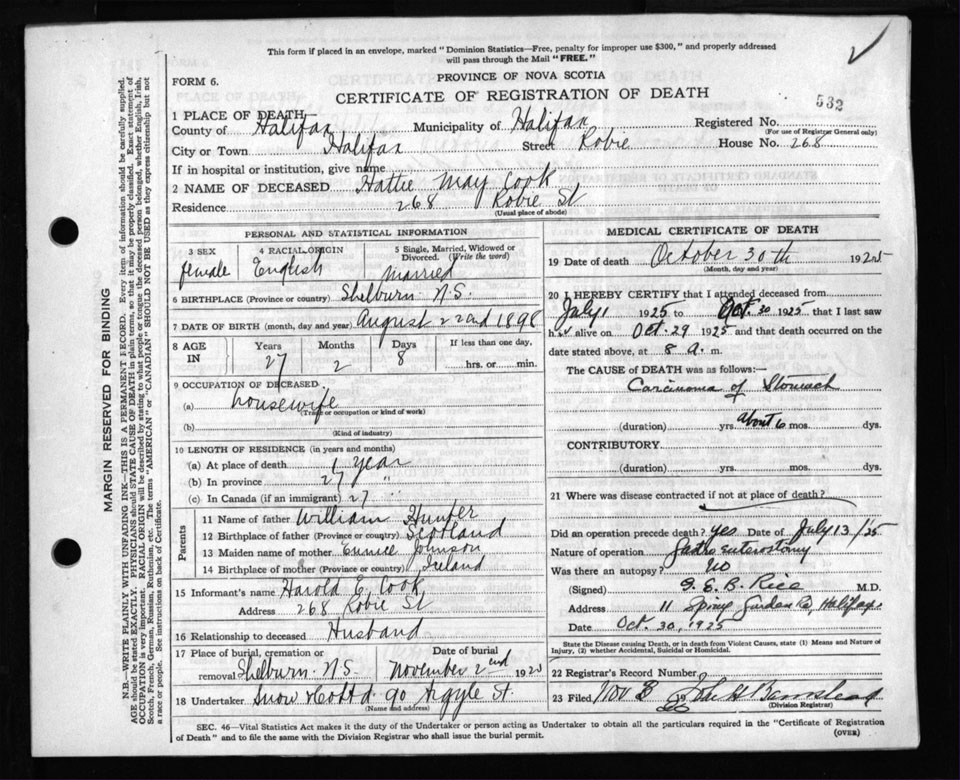 This form if placed in an envelope, marked "Dominion Statistics—Free, penalty for improper use $300," and properly addressed
will pass through the Mail "FREE."
FORM 6.
PROVINCE OF NOVA SCOTIA
CERTIFICATE OF REGISTRATION OF DEATH
532
1 PLACE OF DEATH
County of Halifax Municipality of Halifax Registered No.
(For use of Registrar General only)
City or Town Halifax Street Robie House No. 268
If in hospital or institution, give name
2 NAME OF DECEASED Hattie May Cook
Residence 268 Robie St
(Usual place of abode)
PERSONAL AND STATISTICAL INFORMATION
3 SEX 4 RACIAL ORIGIN 5 Single, Married, Widowed or
Divorced. (Write the word)
female English married
6 BIRTHPLACE (Province or country) Shelburn N.S.
7 DATE OF BIRTH (month, day and year) August 22nd 1898
8 AGE IN Years Months Days If less than one day,
27 2 8 hrs. or min.
9 OCCUPATION OF DECEASED
(a) housewife
(Trade or occupation or kind of work)
(b)
(Kind of industry)
10 LENGTH OF RESIDENCE (in years and months)
(a) At place of death 1 year
(b) In province 27 "
(c) In Canada (if an immigrant) 27 "
Parents
11 Name of father William Hunter
12 Birthplace of father (Province or country) Scotland
13 Maiden name of mother Eunice Johnson
14 Birthplace of mother (Province or country) Ireland
15 Informant's name Harold E. Cook
Address 268 Robie St
16 Relationship to deceased Husband
17 Place of burial, cremation or Date of burial
removal Shelburn N.S. November 2nd 1920
18 Undertaker Snow 90 Argyle St.
(Name and address)
MEDICAL CERTIFICATE OF DEATH
19 Date of death October 30th 1925
(Month, day and year)
20 I HEREBY CERTIFY that I attended deceased from
July 1 1925 to Oct. 30 1925 that I last saw
h er alive on Oct. 29 1925 and that death occurred on the
date stated above, at 8 a. m.
The CAUSE of DEATH was as follows:—
Carcinoma of Stomach
(duration) yrs. about 6 mos. dys.
CONTRIBUTORY
(duration) yrs. mos. dys.
21 Where was disease contracted if not at place of death?
Did an operation precede death? yes Date of July 13/25
Nature of operation Gastro enterostomy
Was there an autopsy? No
(Signed) G. E. B. Rice M.D.
Address 11 Spring Garden Rd, Halifax
Date Oct. 30, 1925
State the Disease causing Death, or in death from Violent Causes, state (1) Means and Nature of
Injury, (2) whether Accidental, Suicidal or Homicidal.
22 Registrar's Record Number
23 Filed Nov 3
(Division Registrar)
SEC. 46—Vital Statistics Act makes it the duty of the Undertaker or person acting as Undertaker to obtain all the particulars required in the "Certificate of Registration
of Death" and to file the same with the Division Registrar who shall issue the burial permit.
(OVER)
MARGIN RESERVED FOR BINDING
N.B.—WRITE PLAINLY WITH UNFADING INK—THIS IS A PERMANENT RECORD. Every item of information should be carefully supplied.
AGE should be stated EXACTLY. PHYSICIANS should STATE CAUSE OF DEATH in plain terms, so that it may be properly classified. Exact statement of
OCCUPATION is very important. RACIAL ORIGIN will be described by stating to what people or tongue the deceased person belonged, whether English, Irish,
Scotch, French, German, Russian, Ruthenian, etc. The terms "AMERICAN" or "CANADIAN" SHOULD NOT BE USED as they express citizenship but not
a race or people. See instructions on back of Certificate.